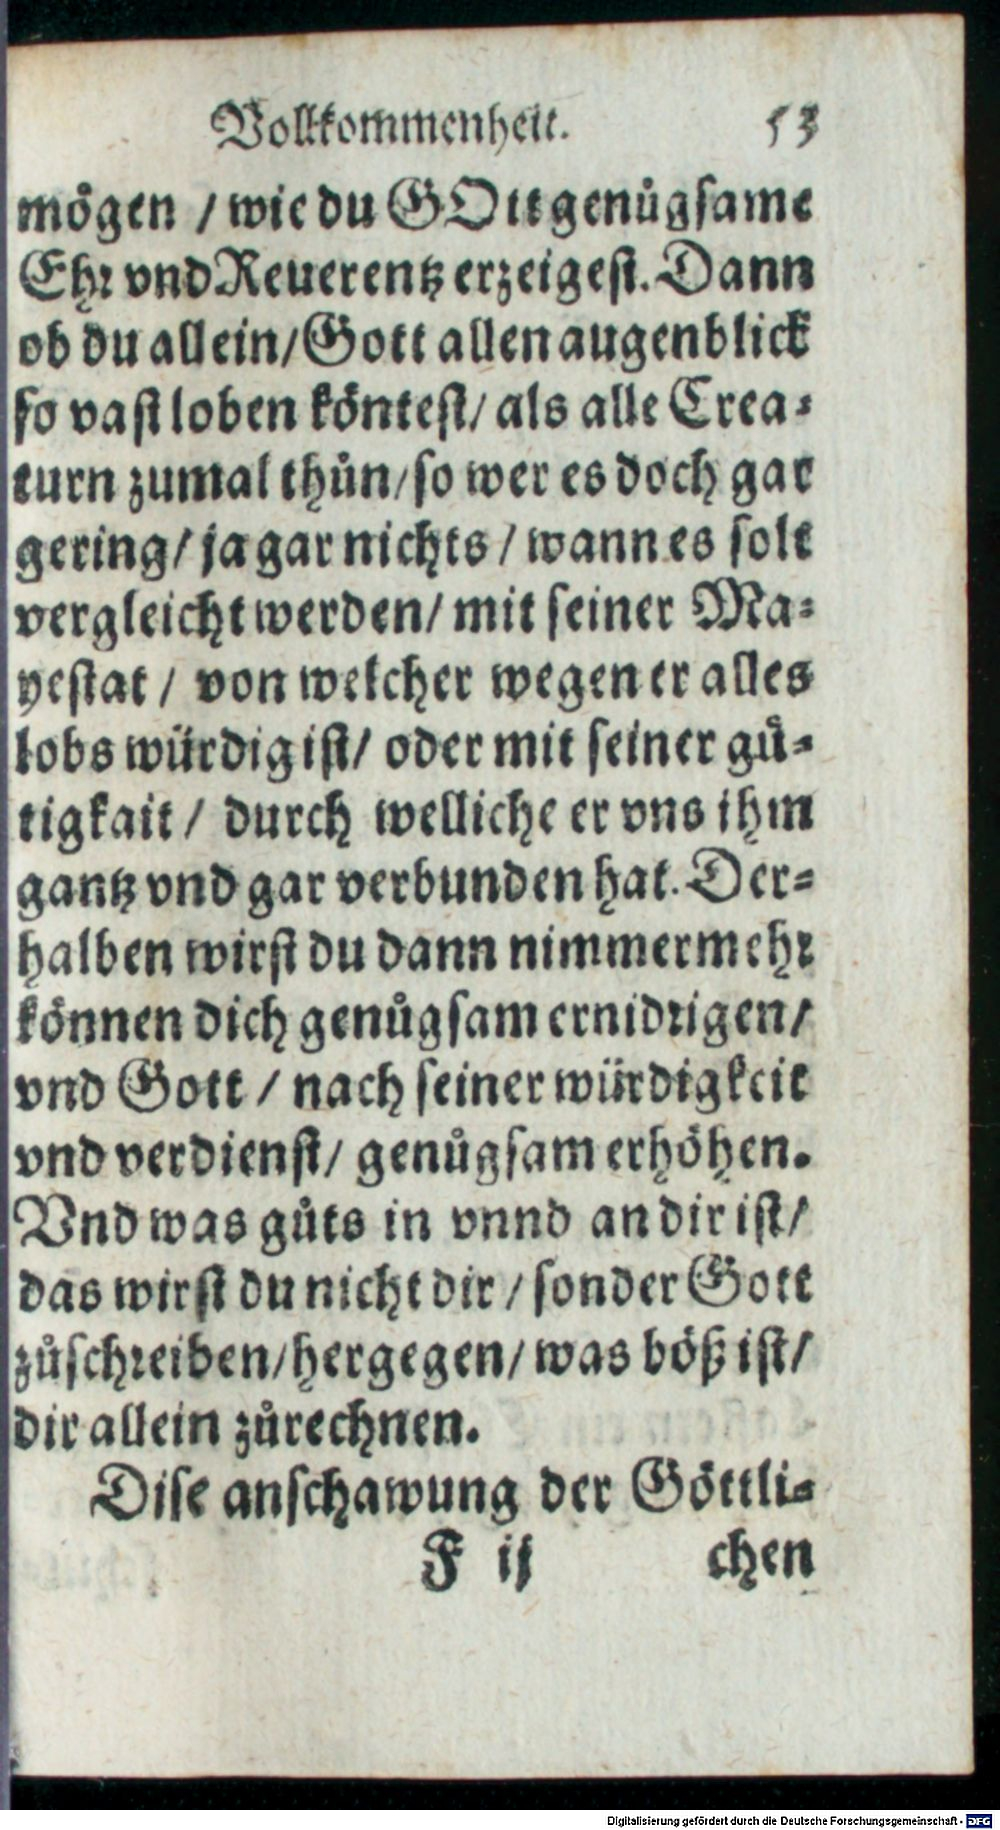 Vollkommenheit. 53
mögen / wie du GOtt genůgsame
Ehr vnd Reuerentz erzeigest. Dann
ob du allein/ Gott allen augenblick
so vast loben köntest/ als alle Crea-
turn zumal thůn/ so wer es doch gar
gering/ ja gar nichts / wann es solt
vergleicht werden/ mit seiner Ma-
yestat / von welcher wegen er alles
lobs würdig ist/ oder mit seiner gů-
tigkait / durch welliche er vns ihm
gantz vnd gar verbunden hat. Der-
halben wirst du dann nimmermehr
können dich genůgsam ernidrigen/
vnd Gott / nach seiner würdigkeit
vnd verdienst/ genůgsam erhöhen.
Vnd was gůts in vnnd an dir ist/
das wirst du nicht dir / sonder Gott
zůschreiben/ hergegen/ was böß ist/
dir allein zůrechnen.
Dise anschawung der Göttli-
F ij chen
Digitalisierung gefördert durch die Deutsche Forschungsgemeinschaft - DFG